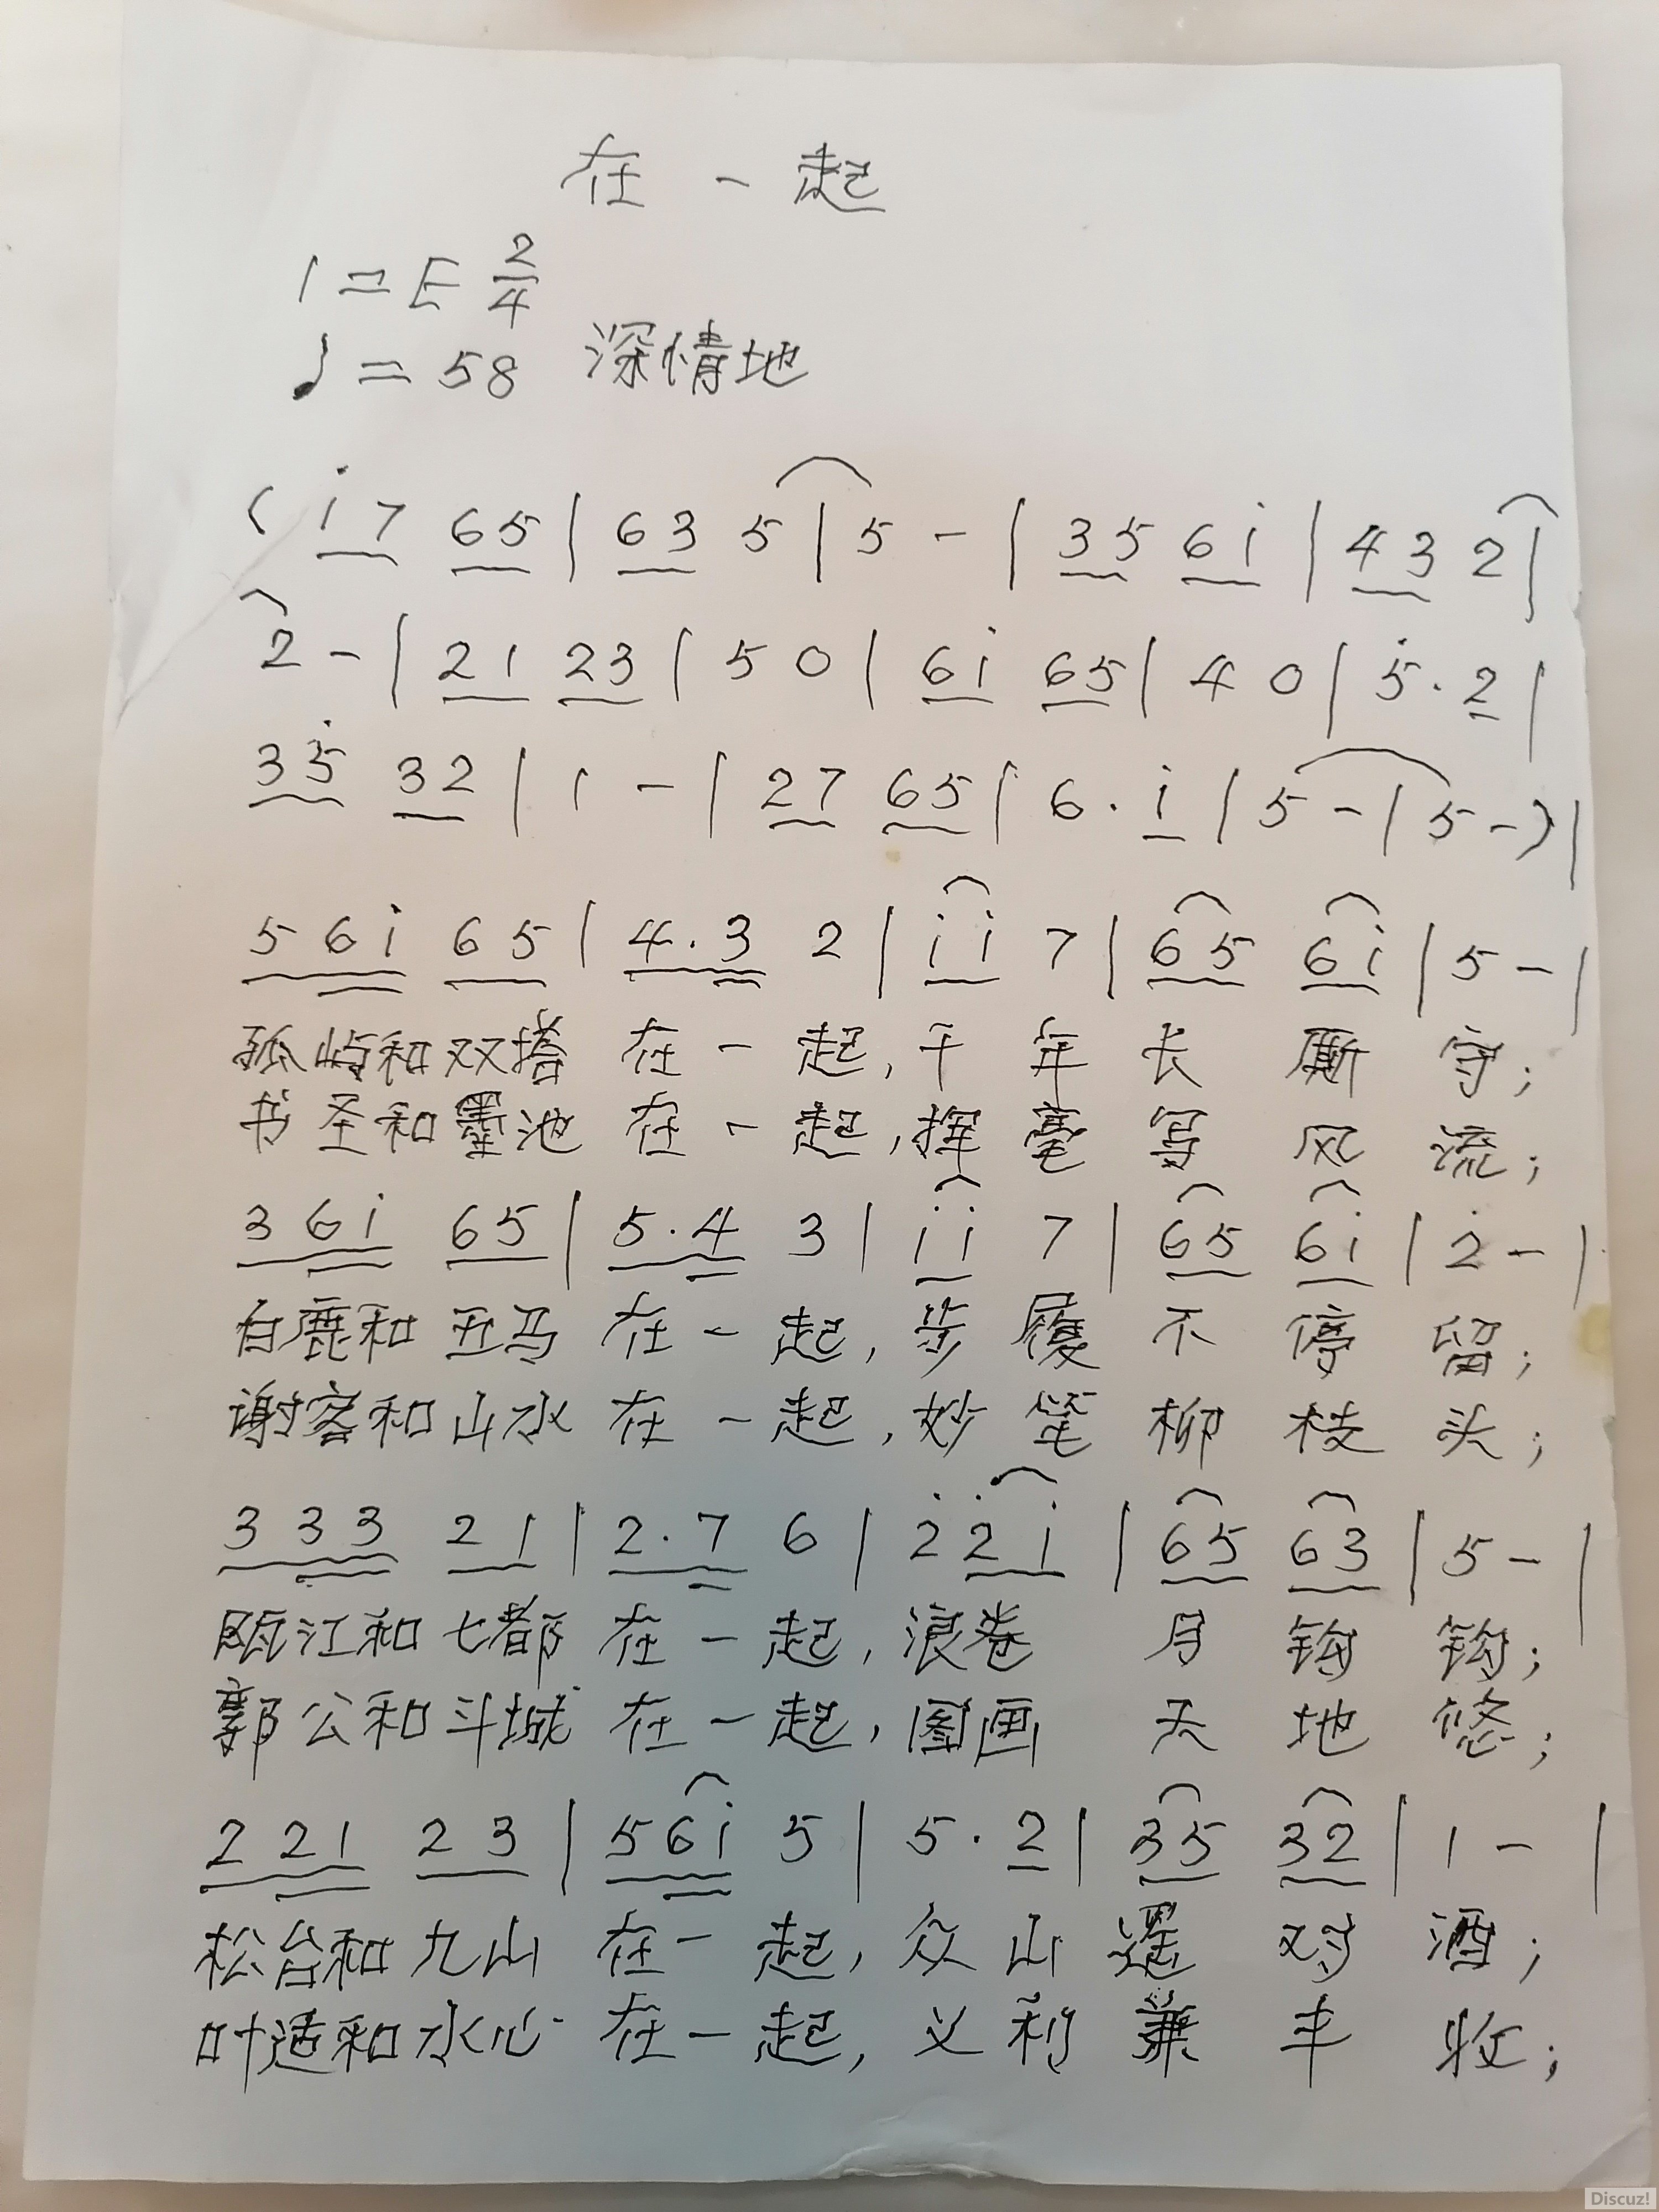 在一起
1=E 2/4
♩=58 深情地
(i̇7 65|63 5|5 -|35 6i̇|43 2|
2 -|21 23|5 0|6i̇ 65|4 0|5·2|
35 32|1 -|27 65|6·i̇|5 -|5 -)|
56i̇ 65|4·3 2|i̇i̇ 7|65 6i̇|5 -|
孤屿和双塔 在一起,千年长厮守;
书圣和墨池 在一起,挥毫写风流;
36i̇ 65|5·4 3|i̇i̇ 7|65 6i̇|2̇ -|
白鹿和五马 在一起,步履不停留;
谢客和山水 在一起,妙笔柳枝头;
333 21|2·7 6|2̇ 2̇i̇|65 63|5 -|
瓯江和七都 在一起,浪卷月钩钩;
郭公和斗城 在一起,图画天地悠;
221 23|56i̇ 5|5·2|35 32|1 -|
松台和九山 在一起,众山遥对酒;
叶适和水心 在一起,义利兼丰收;
Discuz!